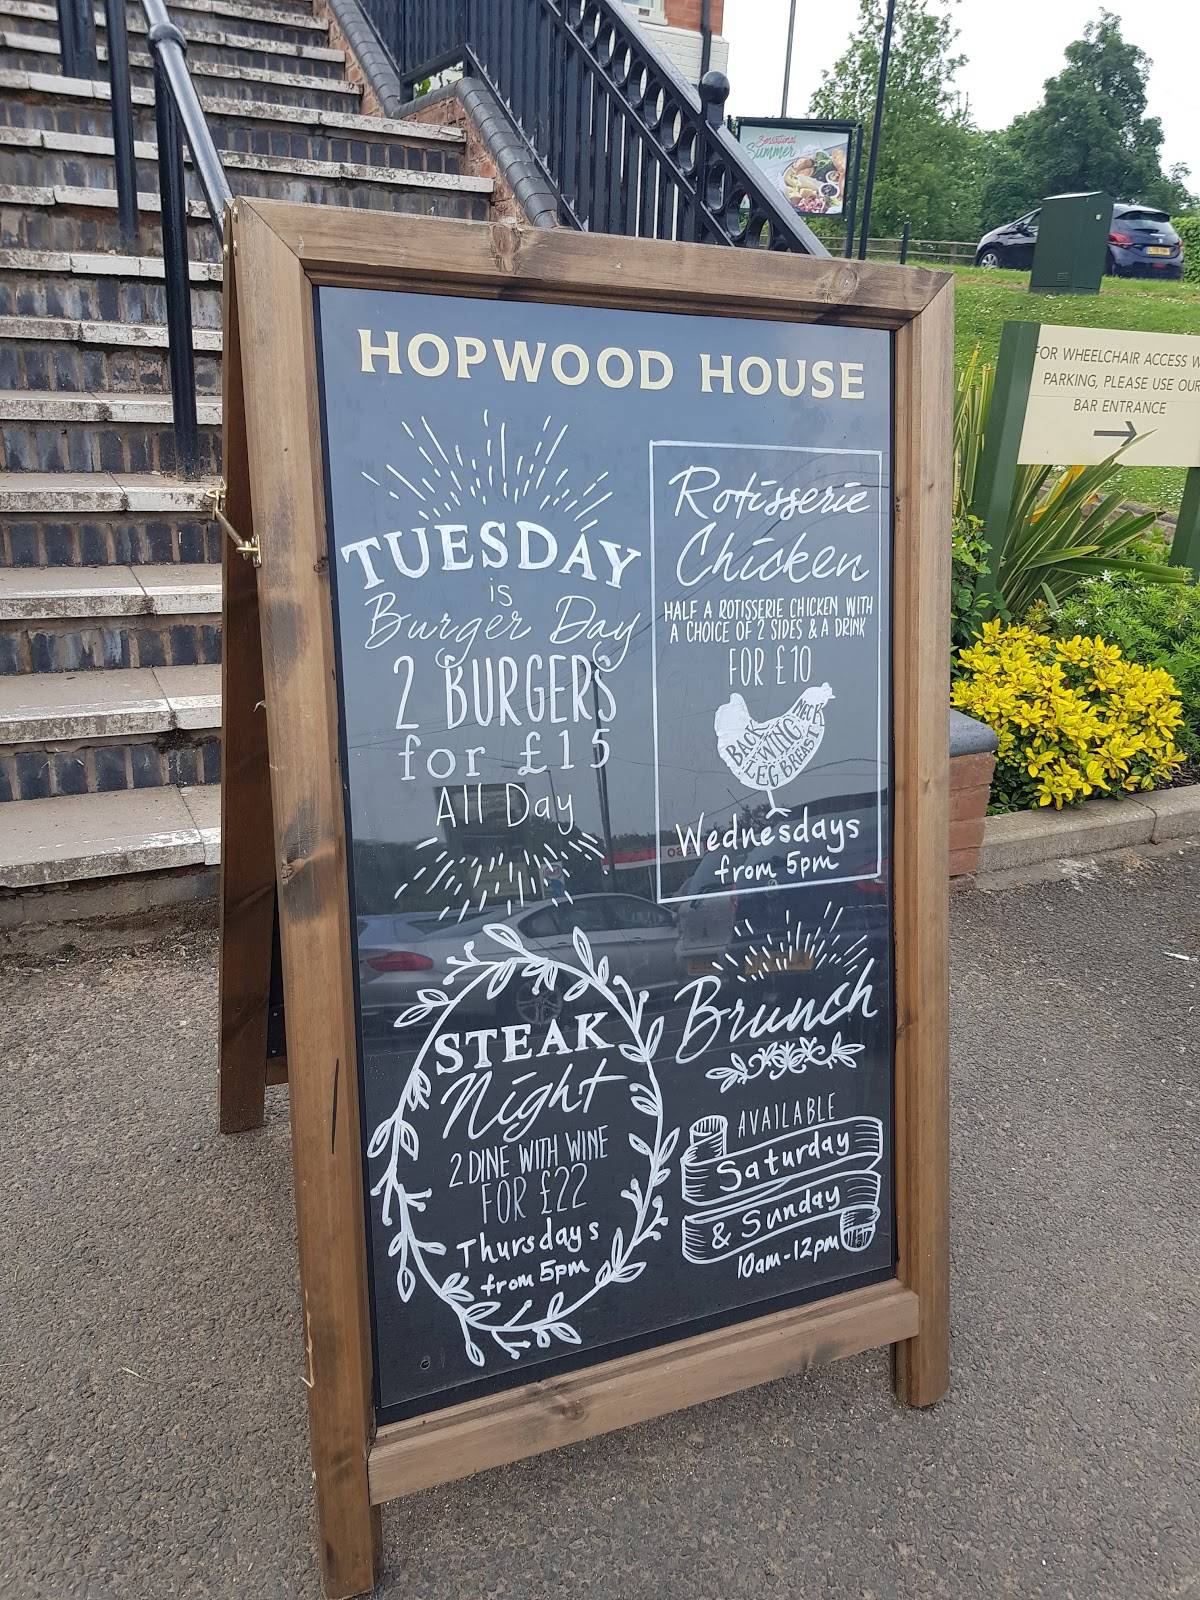 HOPWOOD HOUSE
TUESDAY
is
Burger Day
2 BURGERS
for £15
All Day
Rotisserie
Chicken
HALF A ROTISSERIE CHICKEN WITH
A CHOICE OF 2 SIDES & A DRINK
FOR £10
BACK WING NECK
LEG BREAST
Wednesdays
from 5pm
STEAK
Night
2 DINE WITH WINE
FOR £22
Thursdays
from 5pm
Brunch
AVAILABLE
Saturday
& Sunday
10am-12pm
Sensational
Summer
FOR WHEELCHAIR ACCESS
PARKING, PLEASE USE OUR
BAR ENTRANCE